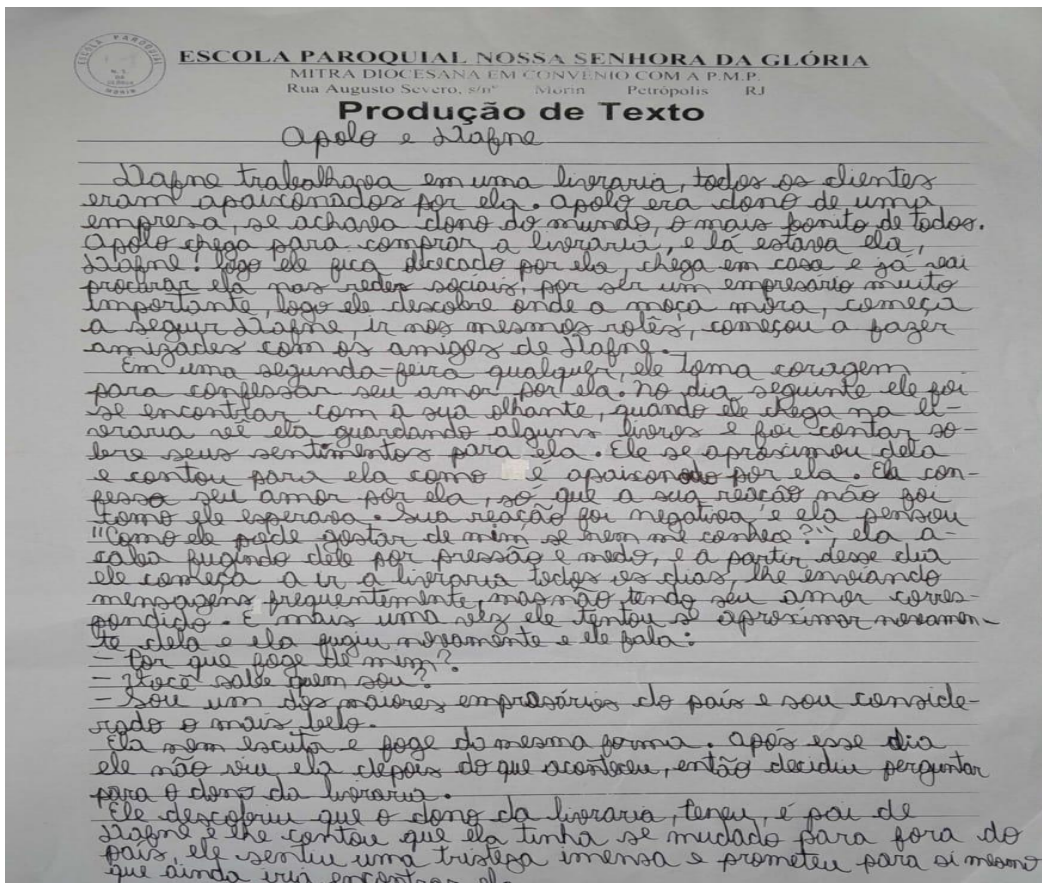 ESCOLA PAROQUIAL
N. S.
DA
GLÓRIA
MORIN
ESCOLA PAROQUIAL NOSSA SENHORA DA GLÓRIA
MITRA DIOCESANA EM CONVÊNIO COM A P.M.P.
Rua Augusto Severo, s/nº Morin Petrópolis RJ
Produção de Texto
Apolo e Dafne
Dafne trabalhava em uma livraria, todos os clientes
eram apaixonados por ela. Apolo era dono de uma
empresa, se achava dono do mundo, o mais bonito de todos.
Apolo chega para comprar a livraria, e lá estava ela,
Dafne! logo ele fica obcecado por ela, chega em casa e já vai
procurar ela nas redes sociais, por ser um empresário muito
importante, logo ele descobre onde a moça mora, começa
a seguir Dafne, ir nos mesmos rolês, começou a fazer
amizades com os amigos de Dafne.
Em uma segunda-feira qualquer, ele toma coragem
para confessar seu amor por ela. No dia seguinte ele foi
se encontrar com a sua olhante, quando ele chega na li-
vraria vê ela guardando alguns livros e foi contar so-
bre seus sentimentos para ela. Ele se aproximou dela
e contou para ela como é apaixonado por ela. Ela con-
fessa seu amor por ela, só que a sua reação não foi
como ele esperava. Sua reação foi negativa e ela pensou
"Como ele pode gostar de mim se nem me conhece?", ela a-
caba fugindo dele por pressão e medo, e a partir desse dia
ele começa a ir a livraria todos os dias, lhe enviando
mensagens frequentemente, mas não tendo seu amor corres-
pondido. E mais uma vez ele tentou se aproximar novamen-
te dela e ela fugiu novamente e ele fala:
- Por que foge de mim?
- Você sabe quem sou?
- Sou um dos maiores empresários do país e sou conside-
rado o mais belo.
Ela nem escuta e foge da mesma forma. Após esse dia
ele não viu ela depois do que aconteceu, então decidiu perguntar
para o dono da livraria.
Ele descobriu que o dono da livraria, é pai de
Dafne e lhe contou que ela tinha se mudado para fora do
país, ele sentiu uma tristeza imensa e prometeu para si mesmo
que ainda iria encontrar ela